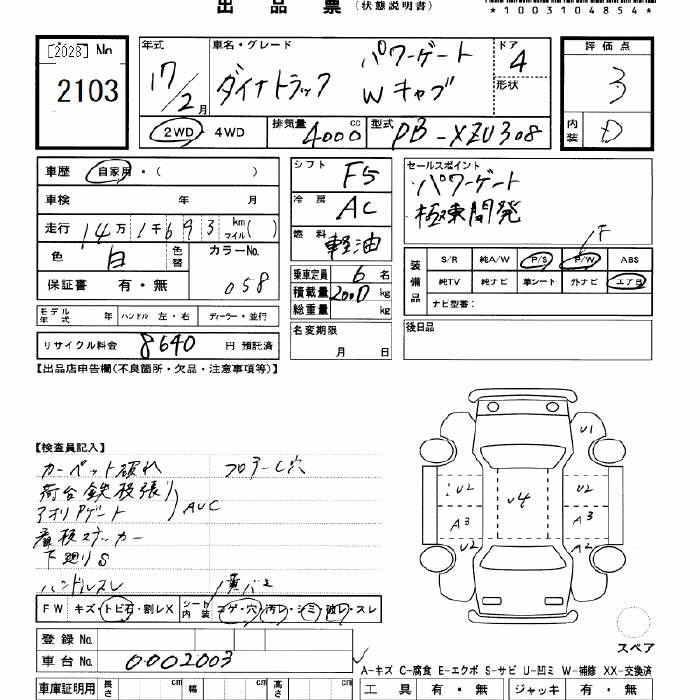 出品票(状態説明書)
*1003104854*
[2028] No 2103
年式 17/2月
車名・グレード ダイナトラック パワーゲート Wキャブ
ドア 4
形状
2WD・4WD
排気量 4000 cc
型式 PB-XZU308
評価点 3
内装 D
車歴 自家用・( )
車検 年 月
走行 14万1千693 km マイル( )
色 白 色替 カラーNo. 058
保証書 有・無
シフト F5
冷房 AC
燃料 軽油
乗車定員 6名
積載量 2000 kg
総重量 kg
セールスポイント
パワーゲート
極東開発
F
装備品 S/R 純A/W P/S P/W ABS
純TV 純ナビ 革シート 外ナビ エアB
ナビ型番:
モデル年式 年 ハンドル 左・右 ディーラー・並行
名変期限 月 日
後日品
リサイクル料金 8640 円 預託済
【出品店申告欄(不良箇所・欠品・注意事項等)】
【検査員記入】
カーペット破れ フロアーC穴
荷台鉄板張り
アオリPゲート AUC
看板ステッカー
下廻りS
ハンドルスレ
FW キズ・トビ石・割レX シート内装 コゲ・穴・汚レ・シミ・破レ・スレ
U1
U2 U4 U2
A3 A3
U2 A2
スペア
登録 No.
車台 No. 0002003
A-キズ C-腐食 E-エクボ S-サビ U-凹ミ W-補修 XX-交換済
車庫証明用 長さ cm 幅 cm 高さ cm 工具 有・無 ジャッキ 有・無